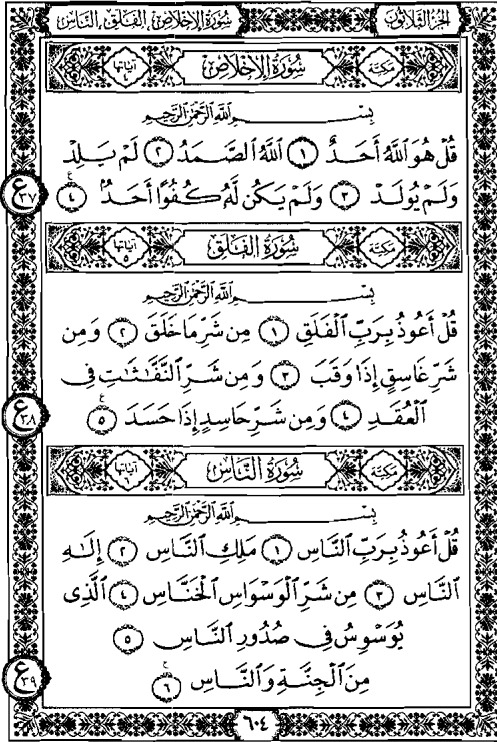 الجزء الثلاثون سورة الإخلاص، الفلق، الناس
مكية سُورَةُ الإِخْلَاصِ آياتها ٤
بِسْمِ اللَّهِ الرَّحْمَٰنِ الرَّحِيمِ
قُلْ هُوَ ٱللَّهُ أَحَدٌ ١ ٱللَّهُ ٱلصَّمَدُ ٢ لَمْ يَلِدْ
وَلَمْ يُولَدْ ٣ وَلَمْ يَكُن لَّهُۥ كُفُوًا أَحَدٌۢ ٤ ع ٣٧
مكية سُورَةُ الفَلَقِ آياتها ٥
بِسْمِ اللَّهِ الرَّحْمَٰنِ الرَّحِيمِ
قُلْ أَعُوذُ بِرَبِّ ٱلْفَلَقِ ١ مِن شَرِّ مَا خَلَقَ ٢ وَمِن
شَرِّ غَاسِقٍ إِذَا وَقَبَ ٣ وَمِن شَرِّ ٱلنَّفَّٰثَٰتِ فِى
ٱلْعُقَدِ ٤ وَمِن شَرِّ حَاسِدٍ إِذَا حَسَدَ ٥ ع ٣٨
مكية سُورَةُ النَّاسِ آياتها ٦
بِسْمِ اللَّهِ الرَّحْمَٰنِ الرَّحِيمِ
قُلْ أَعُوذُ بِرَبِّ ٱلنَّاسِ ١ مَلِكِ ٱلنَّاسِ ٢ إِلَٰهِ
ٱلنَّاسِ ٣ مِن شَرِّ ٱلْوَسْوَاسِ ٱلْخَنَّاسِ ٤ ٱلَّذِى
يُوَسْوِسُ فِى صُدُورِ ٱلنَّاسِ ٥
مِنَ ٱلْجِنَّةِ وَٱلنَّاسِ ٦ ع ٣٩
٦٠٤